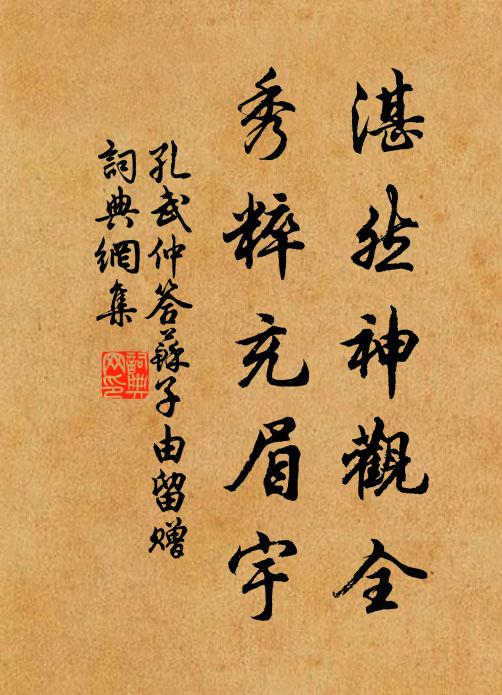 湛然神觀全
秀粹充眉宇
孔武仲答蘇子由留贈
詞典網集
詞典網印